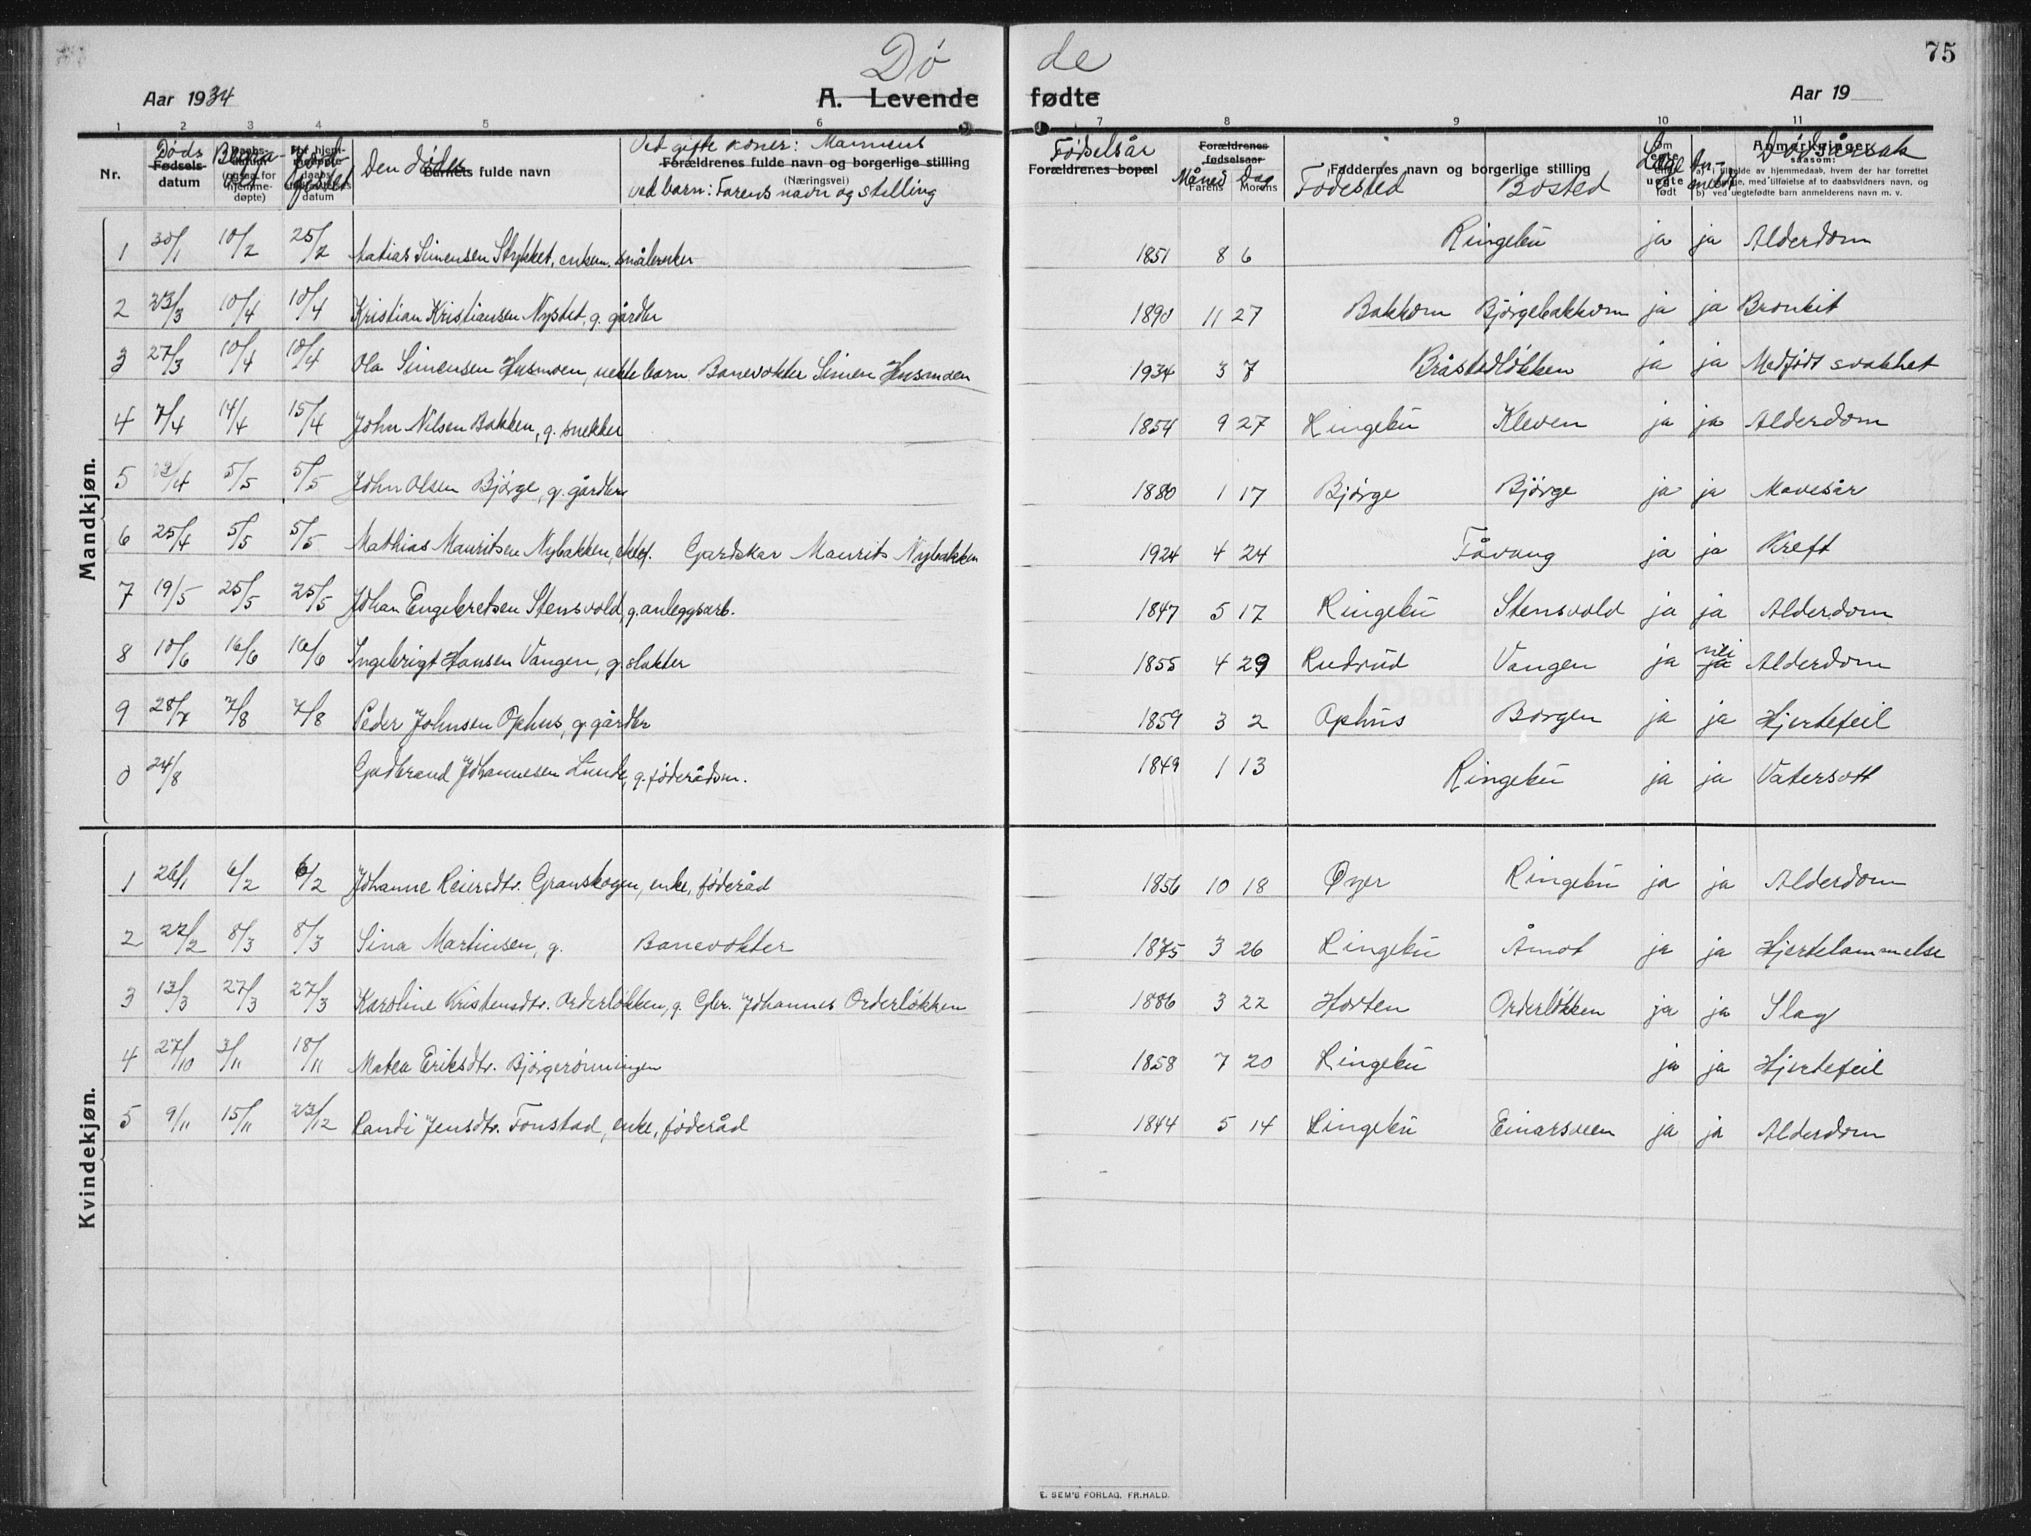 Dø de 75
Aar 1934 A. Levende fødte Aar 19
1 2 3 4 5 6 7 8 9 10 11
Nr. Døds Fødsels- datum Den døde Barnets fulde navn
Ved gifte koner: Mannens
Forældrenes fulde navn og borgerlige stilling
(Næringsvei)
ved barn: Farens navn og stilling
Fødselsår Forældrenes bopæl
Forældrenes fødselsaar Måned Dag Farens Morens
Faddernes navn og borgerlige stilling
Fødested Bosted
Anmerkninger Dødsårsak
Mandkjøn.
1 30/1 10/2 25/2 Matias Simensen Stykket, enkem. småbruker 1851 8 6 Ringebu ja ja Alderdom
2 23/3 10/4 10/4 Kristian Kristiansen Nystet, g. gårdbr 1890 11 27 Bakkom Bjørgebakkom ja ja Bronkit
3 27/3 10/4 10/4 Ola Simensen Husmoen, uekte barn Banevokter Simen Husmoen 1934 3 7 Bråstadløkken ja ja Medfødt svakhet
4 7/4 14/4 15/4 John Nilsen Bakken, g. snekker 1854 9 27 Ringebu Kleven ja ja Alderdom
5 /4 5/5 5/5 John Olsen Bjørge, g. gårdbr 1880 1 17 Bjørge Bjørge ja ja Mavesår
6 25/4 5/5 5/5 Mathias Mauritsen Nybakken, Gardskar Maurits Nybakken 1924 4 24 Fåvang ja ja Kreft
7 19/5 25/5 25/5 Johan Engebretsen Stensvold, g. anleggsarb. 1847 5 17 Ringebu Stensvold ja ja Alderdom
8 10/6 16/6 16/6 Ingebrigt Hansen Vangen, g. slakter 1855 4 29 Rudsrud Vangen ja nei ja Alderdom
9 28/7 7/8 7/8 Peder Johnsen Ophus, g. gårdbr 1859 3 2 Ophus Borgen ja ja Hjertefeil
0 24/8 Gudbrand Johannesen Lunde, g. føderådsm. 1849 1 13 Ringebu ja ja Vatersott
Kvindekjøn.
1 26/1 6/2 6/2 Johanne Reiersdtr. Granskogen, enke, føderåd 1856 10 18 Øyer Ringebu ja ja Alderdom
2 22/2 8/3 8/3 Sina Martinsen, g. Banevokter 1875 3 26 Ringebu Åmot ja ja Hjertelammelse
3 13/3 27/3 27/3 Karoline Kristensdtr. Orderløkken, g. Gbr. Johannes Orderløkken 1886 3 22 Horten Orderløkken ja ja Slag
4 27/10 3/11 18/11 Matea Eriksdtr. Bjørgerønningen 1858 7 20 Ringebu ja ja Hjertefeil
5 9/11 15/11 23/12 Randi Jensdtr. Fonstad, enke, føderåd 1844 5 14 Ringebu Einarsveen ja ja Alderdom
E. SEM'S FORLAG. FR.HALD.